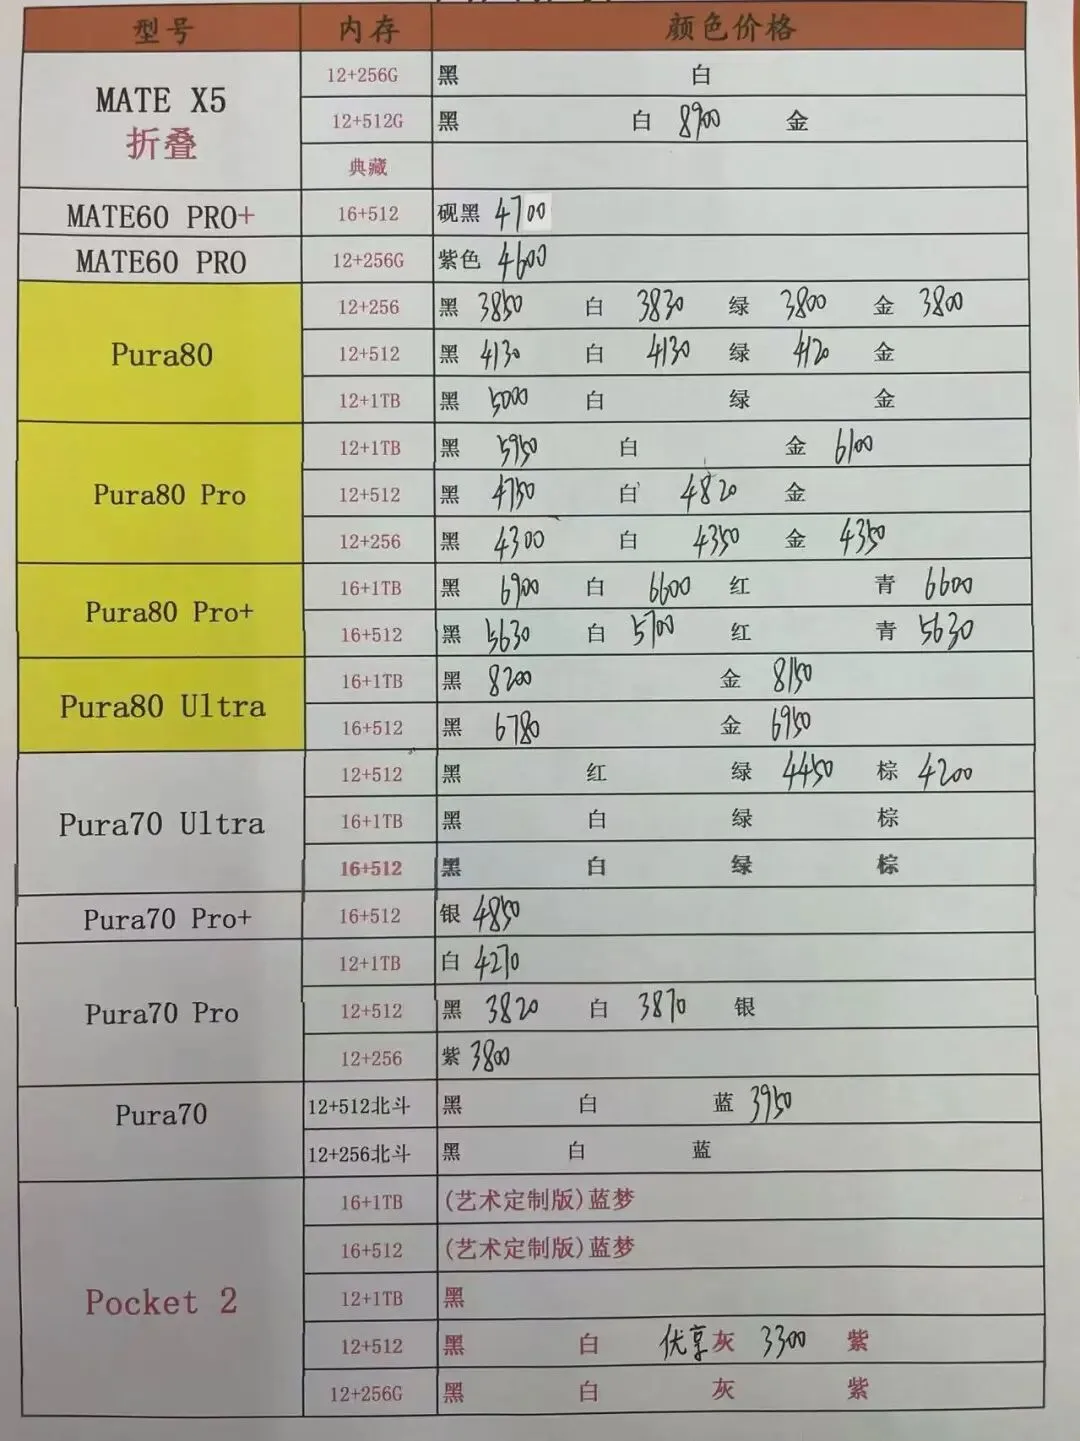 型号 内存 颜色价格
MATE X5 折叠
12+256G 黑 白
12+512G 黑 白 8900 金
典藏
MATE60 PRO+ 16+512 砚黑 4700
MATE60 PRO 12+256G 紫色 4600
Pura80
12+256 黑 3850 白 3830 绿 3800 金 3800
12+512 黑 4130 白 4130 绿 4120 金
12+1TB 黑 5000 白 绿 金
Pura80 Pro
12+1TB 黑 5950 白 金 6100
12+512 黑 4750 白 4820 金
12+256 黑 4300 白 4350 金 4350
Pura80 Pro+
16+1TB 黑 6900 白 6600 红 青 6600
16+512 黑 5630 白 5700 红 青 5630
Pura80 Ultra
16+1TB 黑 8200 金 8150
16+512 黑 6780 金 6950
Pura70 Ultra
12+512 黑 红 绿 4450 棕 4200
16+1TB 黑 白 绿 棕
16+512 黑 白 绿 棕
Pura70 Pro+ 16+512 银 4850
Pura70 Pro
12+1TB 白 4270
12+512 黑 3820 白 3870 银
12+256 紫 3800
Pura70
12+512北斗 黑 白 蓝 3950
12+256北斗 黑 白 蓝
Pocket 2
16+1TB (艺术定制版)蓝梦
16+512 (艺术定制版)蓝梦
12+1TB 黑
12+512 黑 白 优享灰 3300 紫
12+256G 黑 白 灰 紫